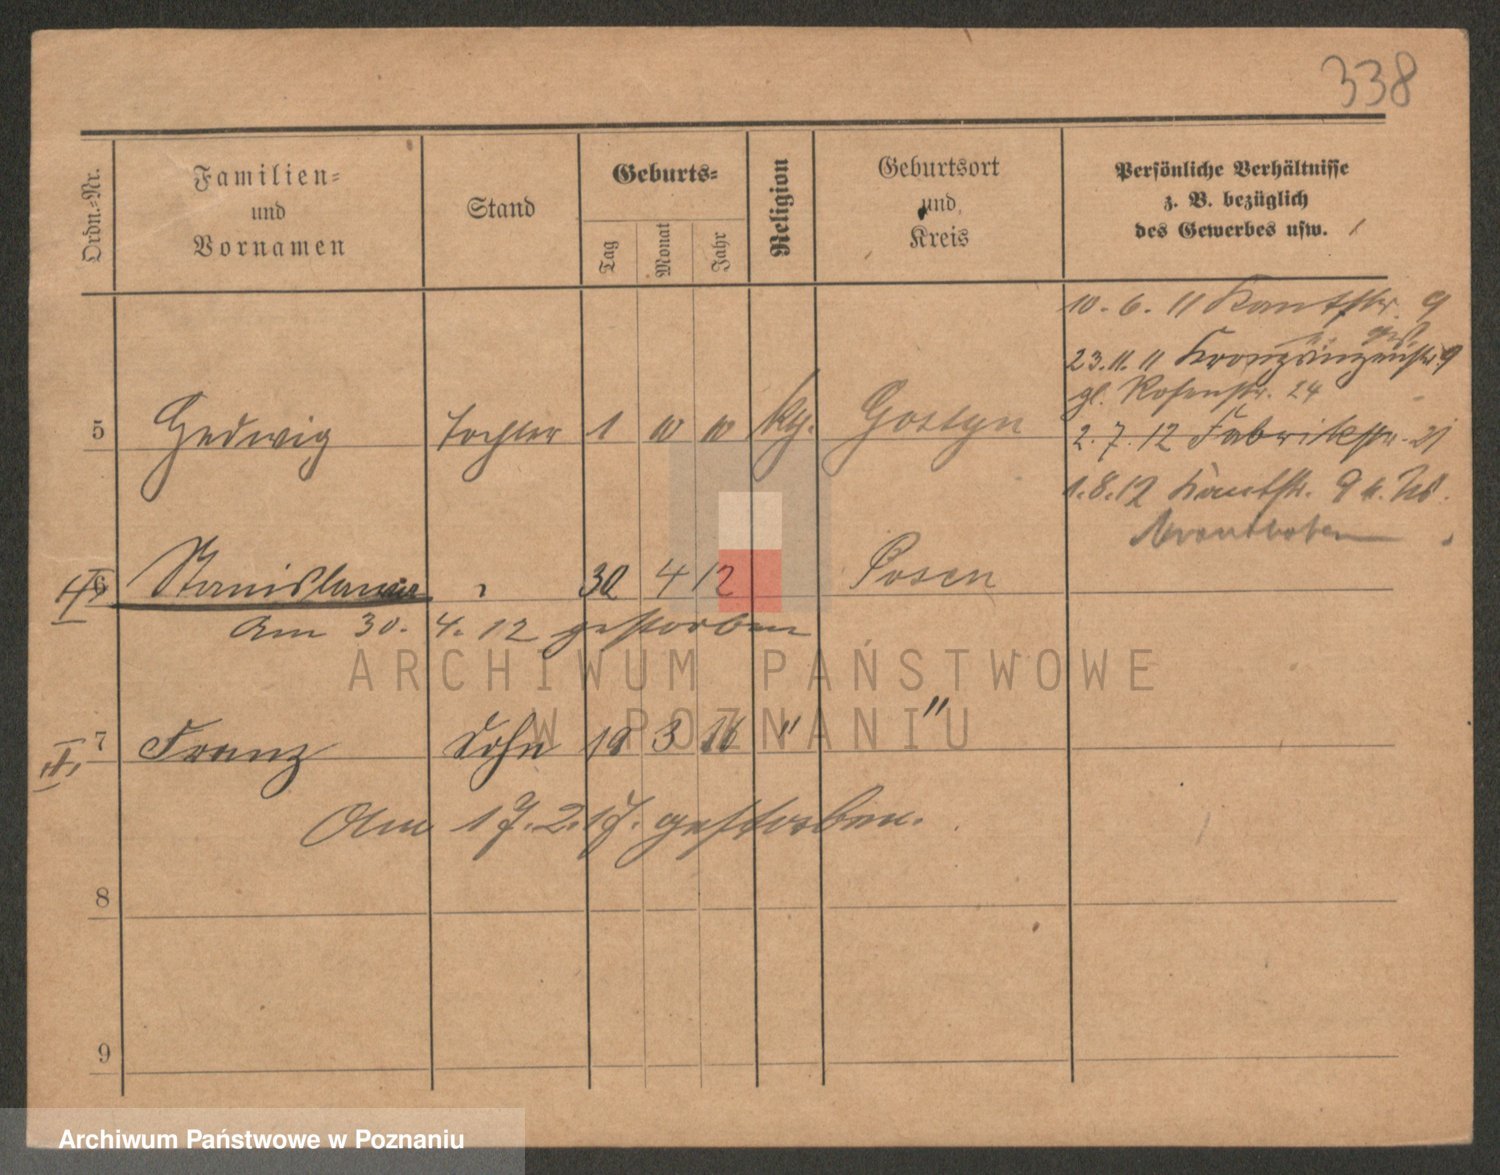 338
Ordn.-Nr.
Familien-
und
Vornamen
Stand
Geburts-
Tag
Monat
Jahr
Religion
Geburtsort
und
Kreis
Persönliche Verhältnisse
z. B. bezüglich
des Gewerbes usw.
10. 6. 11 Kantstr. 9
23. 11. 11 Kronprinzenstr. 9
gl. Rosenstr. 24
5 Hedwig Tochter 1 10 10 kth. Gostyn
2. 7. 12 Fabrikstr. 21
1. 8. 12 Kantstr. 9
6 Stanislawa " 30 4 12 Posen
am 30. 4. 12 gestorben
7 Franz Sohn 18 3 16 " "
Am 17. 2. 17. gestorben.
8
9
ARCHIWUM PAŃSTWOWE
W POZNANIU
Archiwum Państwowe w Poznaniu